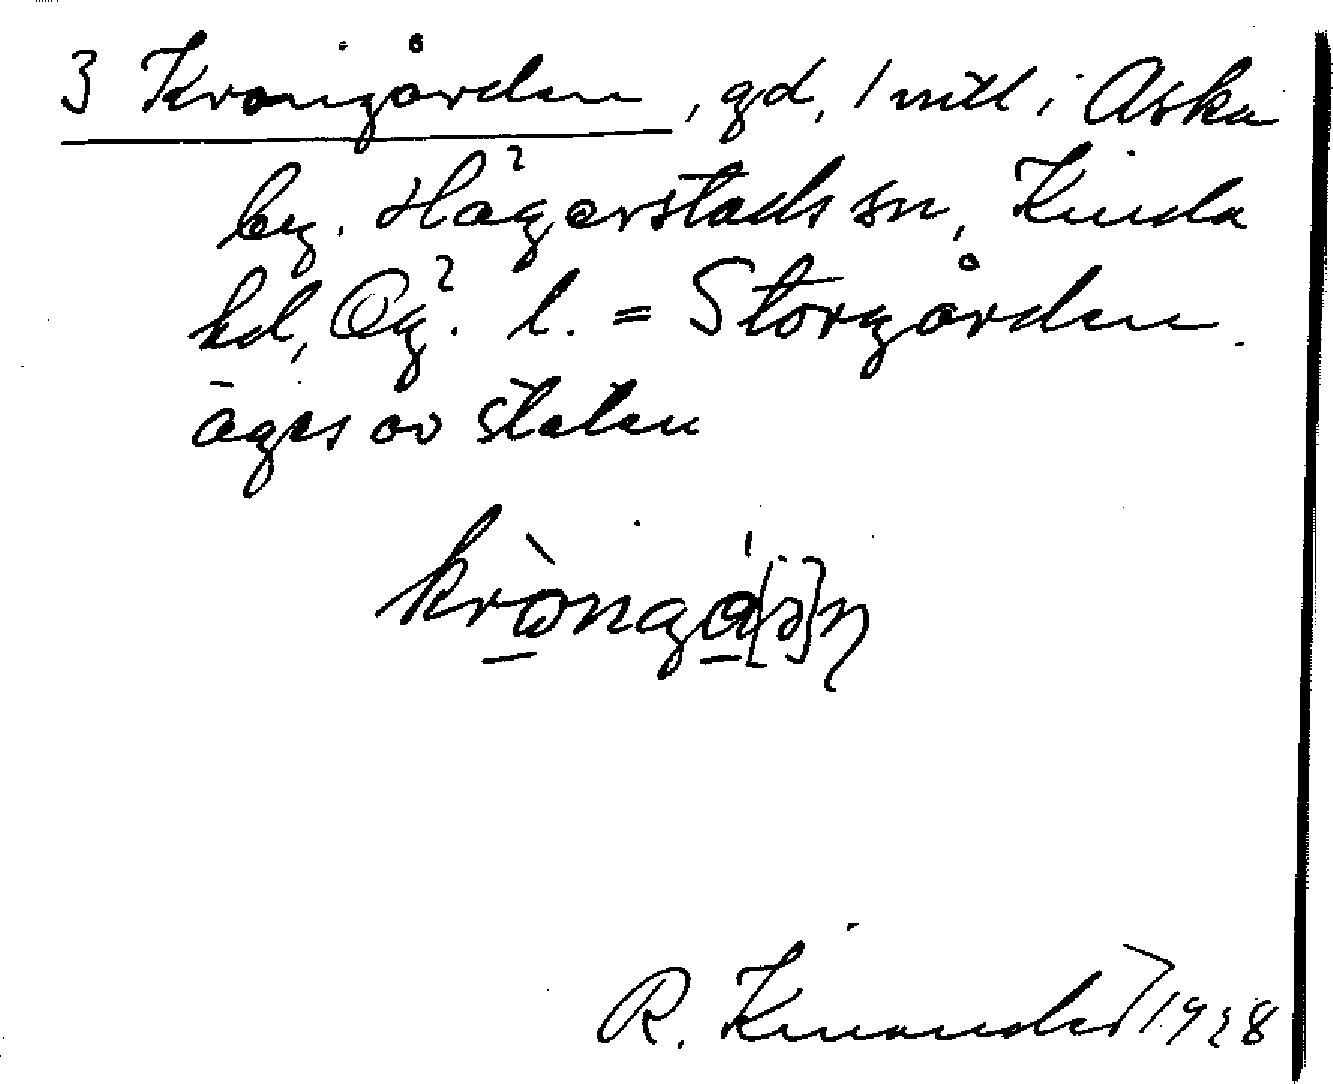 3 Krongården, gd, 1 mtl i Aska
by. Hägerstads sn, Kinda
hd, Ög. l. = Storgården
äges av staten
R. Kinander 1928